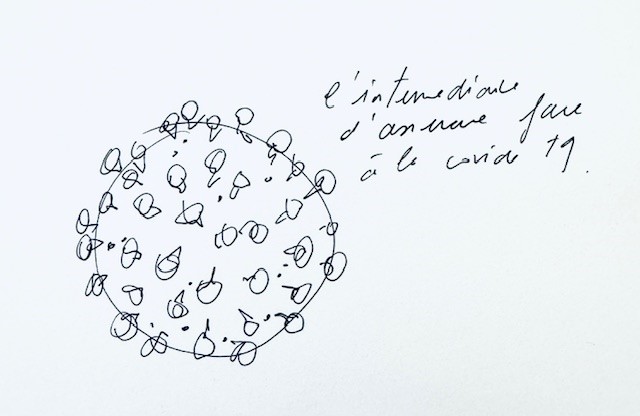 l'intermediaire
d'assurance face
à la covide 19.